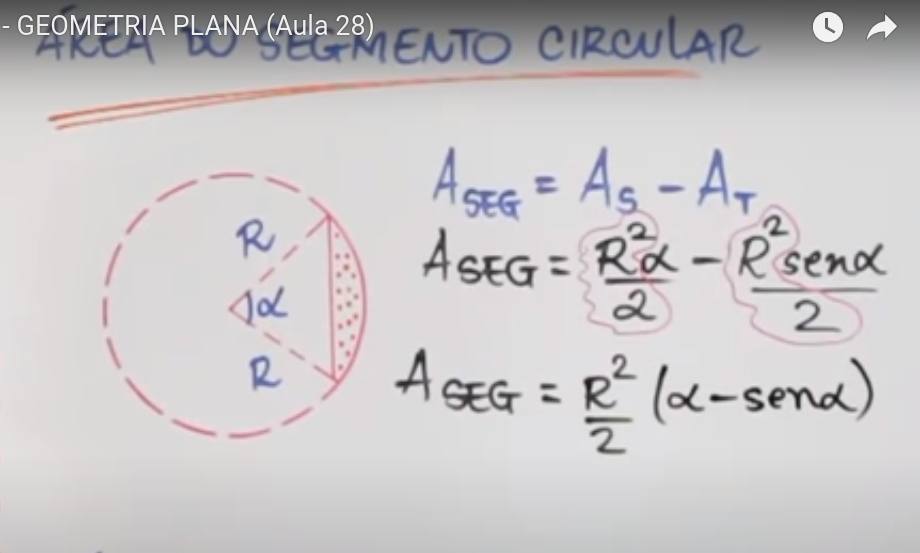 - GEOMETRIA PLANA (Aula 28)
ÁREA DO SEGMENTO CIRCULAR
A_SEG = A_S - A_T
A_SEG = R²α/2 - R²senα/2
A_SEG = R²/2 (α-senα)
R
α
R